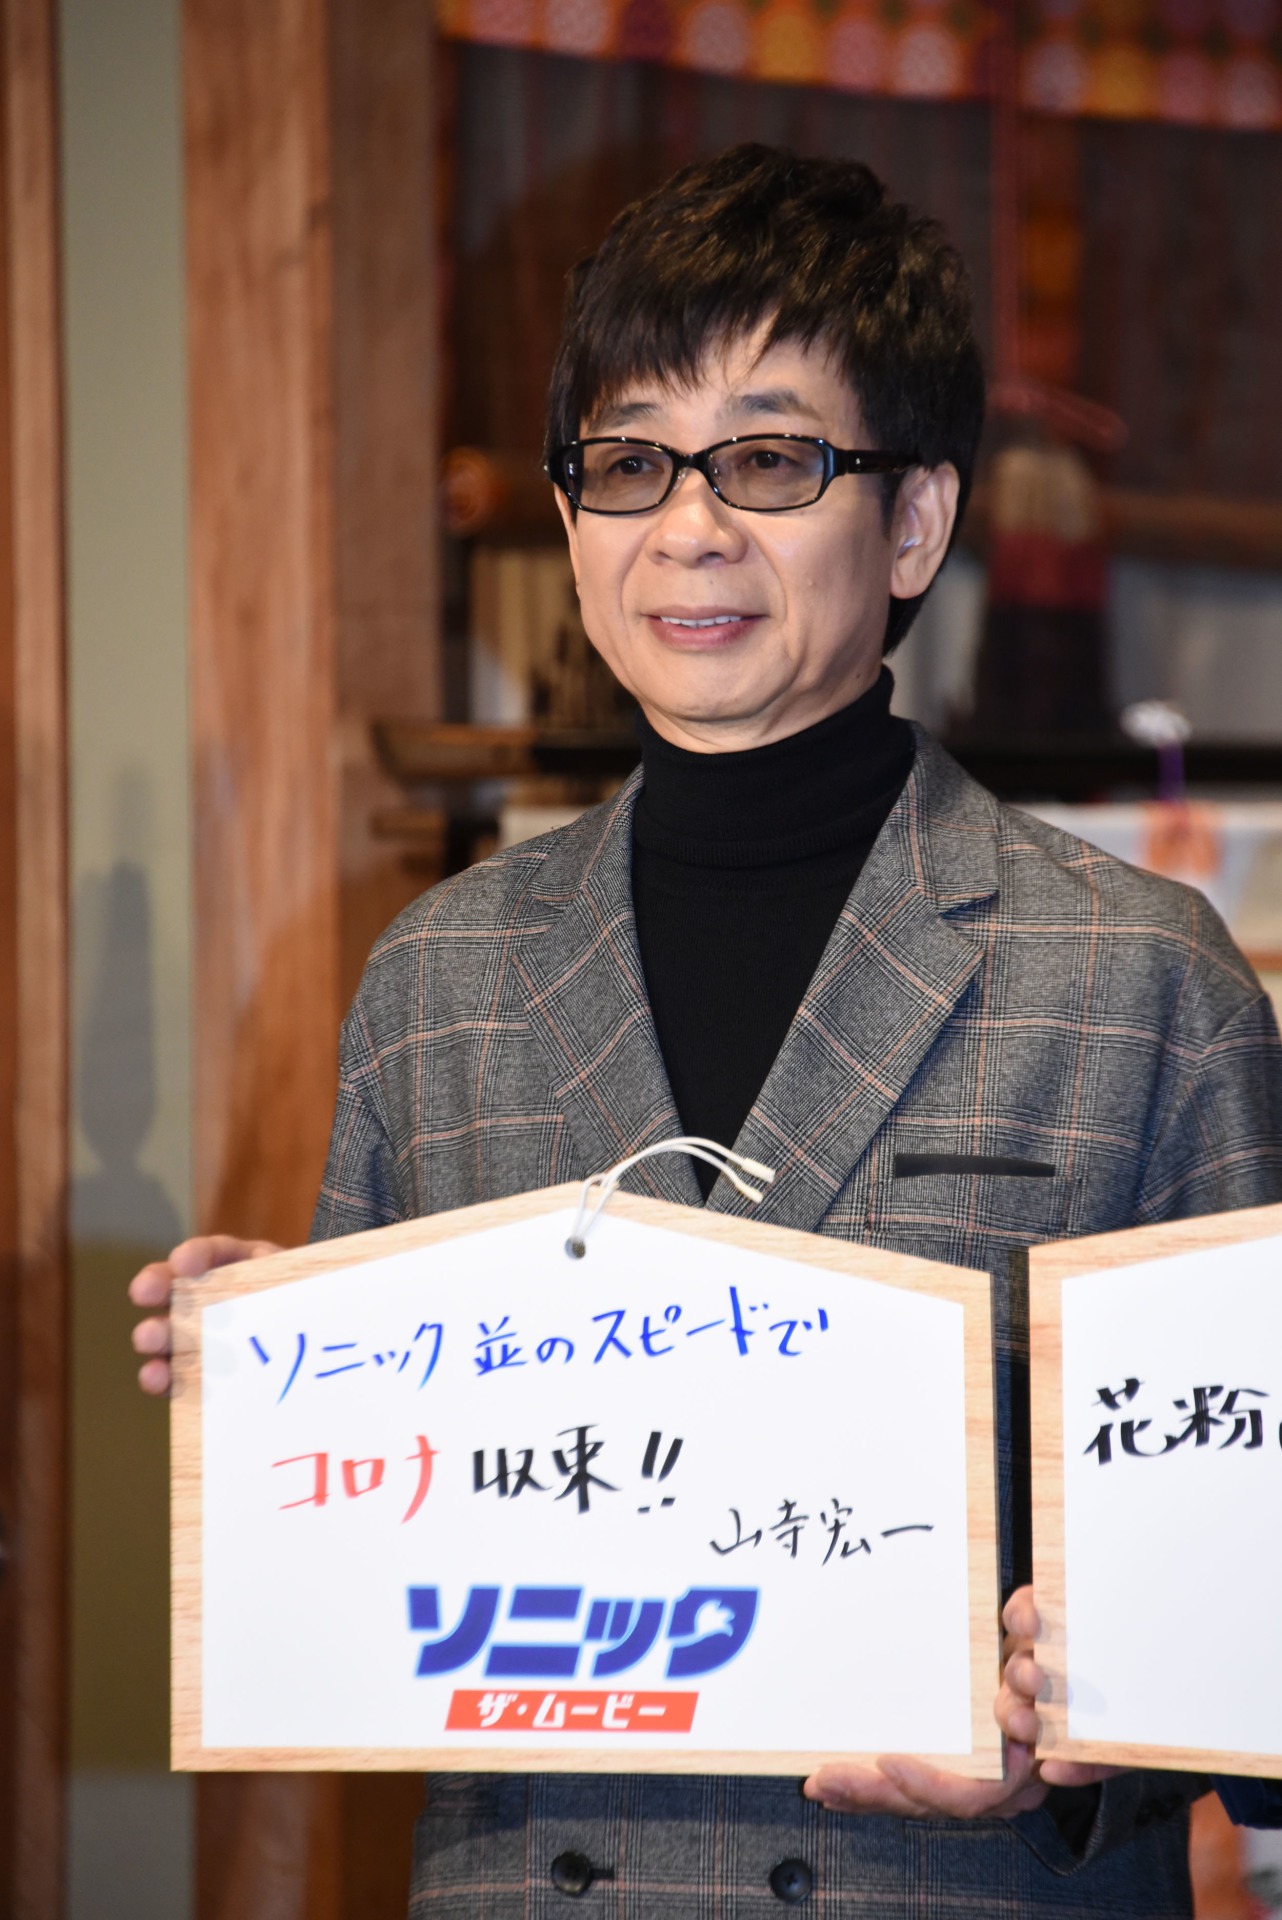 ソニック並のスピードで
コロナ収束!!
山寺宏一
ソニック
ザ・ムービー
花粉